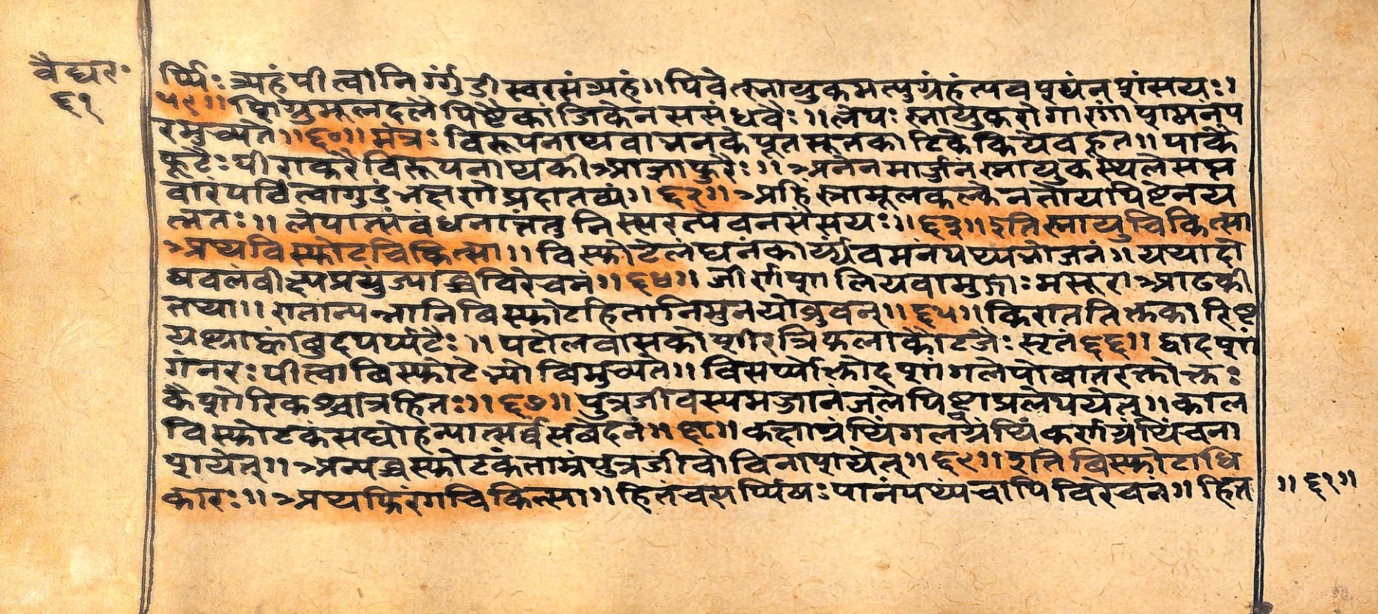 वैद्यर॰
६१
र्प्पिः त्र्यहं पीत्वा निर्गुंडी स्वरसं त्र्यहं॥ पिवेत्स्नायुकमत्युग्रं हंत्यवपृयं न पृांसयः।
५९॥ शिग्रुमूलदलै पिष्टै कांजिकेन ससंधवैः॥ लेपः स्नायुकरोगारंगां पृामनंप
रमुच्यते॥ ६०॥ मंत्रः विरूपनाथ वाभनके पूत सूतकाटिकै कियेवहत॥ पाकै
फूटैः पीराकरै विरूपनाथकी आज्ञा फुरैः॥ अनेन मार्जुनं स्नायुकस्थले सप्त
वारं पठित्वा गुडं भक्षणे प्रदातव्यं॥ ६२॥ अहिस्नामूलकल्केन तोयपिष्टेन य
त्नतः॥ लेपात्संवंधनात्तंतु निस्सरत्यवनसंसयः॥ ६३॥ इति स्नायुचिकित्सा
अथ विस्फोटचिकित्सा॥ विस्फोटे लंघनं कार्य्यं वमनं पथ्यभोजनं॥ यथादो
षवलं वीक्ष्य प्रयुंज्याच्च विरेचनं॥ ६४॥ जीर्णपृालियवामुद्गाः मसूराआढकी
तथा॥ रातान्यन्नानि विस्फोटहितानि मुनयोब्रुवन्॥ ६५॥ किराततिक्तकारिष्ट
यष्ट्याह्वांवुदपर्प्पटैः॥ पटोलवासकोपृीरत्रिफलाकौटजैः सृतं ६६॥ द्वादपृां
गंनरः पीत्वा विस्फोटेभ्यो विमुच्यते॥ विसर्प्पोक्तोदपृागलेपो वातरक्तोक्तः
कैपृोरिकश्चात्र हितः॥ ६७॥ पुत्रजीवस्य मज्जानं जले पिष्ट्वा प्रलेपयेत्॥ काल
विस्फोटकं सद्यो हन्यात्सर्व्वं सवेदनं॥ ६८॥ कक्षाग्रंथिं गलग्रंथिं कर्णग्रंथिं च ना
पृायेत्॥ अन्यच्च स्फोटकं ताम्रं पुत्रजीवो विनापृायेत्॥ ६९॥ इति विस्फोटाधि
कारः॥ अथ फिरंगचिकित्सा॥ हितं च सर्प्पिषः पानं पथ्यं चापि विरेचनं॥ हित
॥ ६१॥